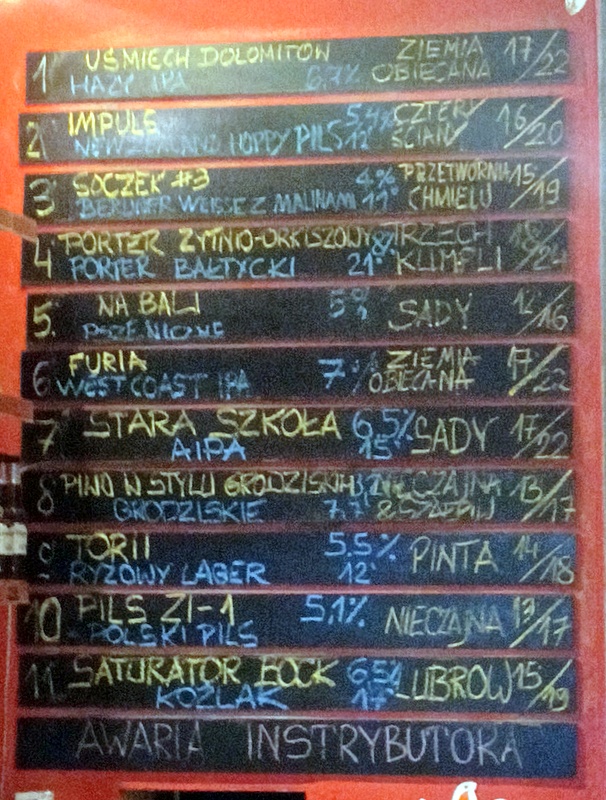 1 UŚMIECH DOLOMITÓW ZIEMIA 17/22
HAZY IPA 6,7% OBIECANA
2 IMPULS 5,4% CZTERY 16/20
NEW ZEALAND HOPPY PILS 12° ŚCIANY
3 SOCZEK #3 4% PRZETWÓRNIA 15/19
BERLINER WEISSE Z MALINAMI 11° CHMIELU
4 PORTER ŻYTNIO-ORKISZOWY TRZECH 18/24
PORTER BAŁTYCKI 21° KUMPLI
5. NA BALI 5% SADY 12/16
PSZENICZNE
6 FURIA 7% ZIEMIA 17/22
WEST COAST IPA OBIECANA
7 STARA SZKOŁA 6,5% SADY 17/22
AIPA 15°
8 PIWO W STYLU GRODZISKIM NIECZAJNA 13/17
GRODZISKIE 7,7°
9 TORII 5.5% PINTA 14/18
RYŻOWY LAGER 12°
10 PILS ZI-1 5,1% NIECZAJNA 13/17
POLSKI PILS
11 SATURATOR BOCK 6,5% LUBROW 15/19
KOŹLAK 17°
AWARIA INSTRYBUTORA